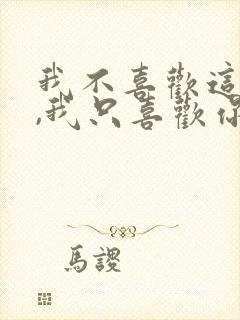 我不喜歡這
,我只喜歡你
馬謖